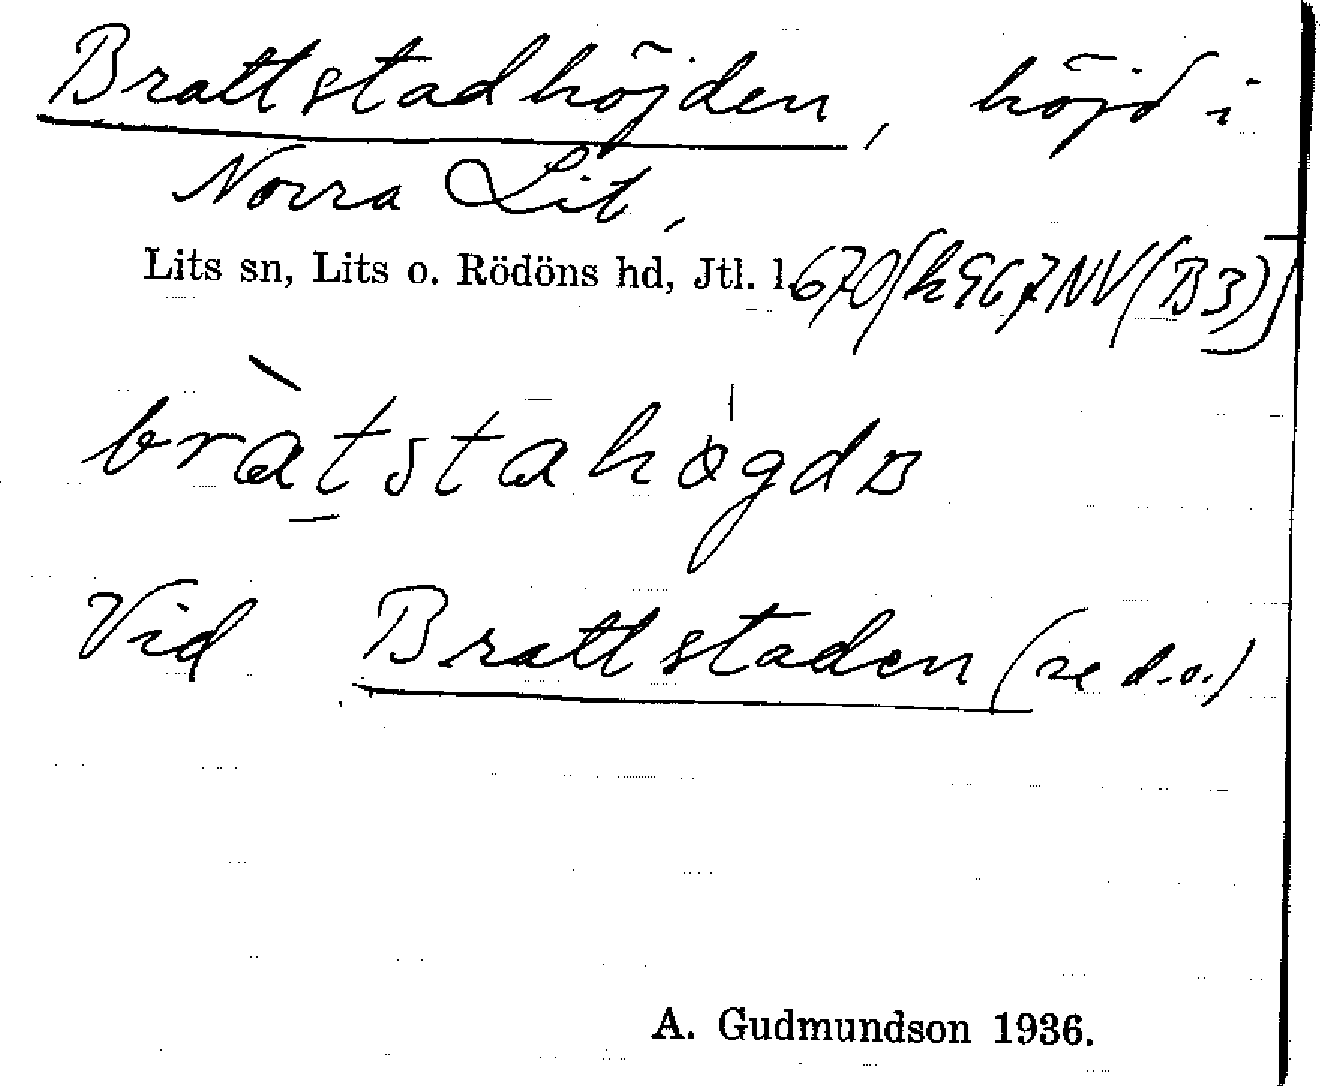 Brattstadhöjden, höjd i
Norra Lit,
Lits sn, Lits o. Rödöns hd, Jtl. l. 670 [k 967 NV (B3)]
bràtstahøgdɒ
Vid Brattstaden (se d.o.)
A. Gudmundson 1936.